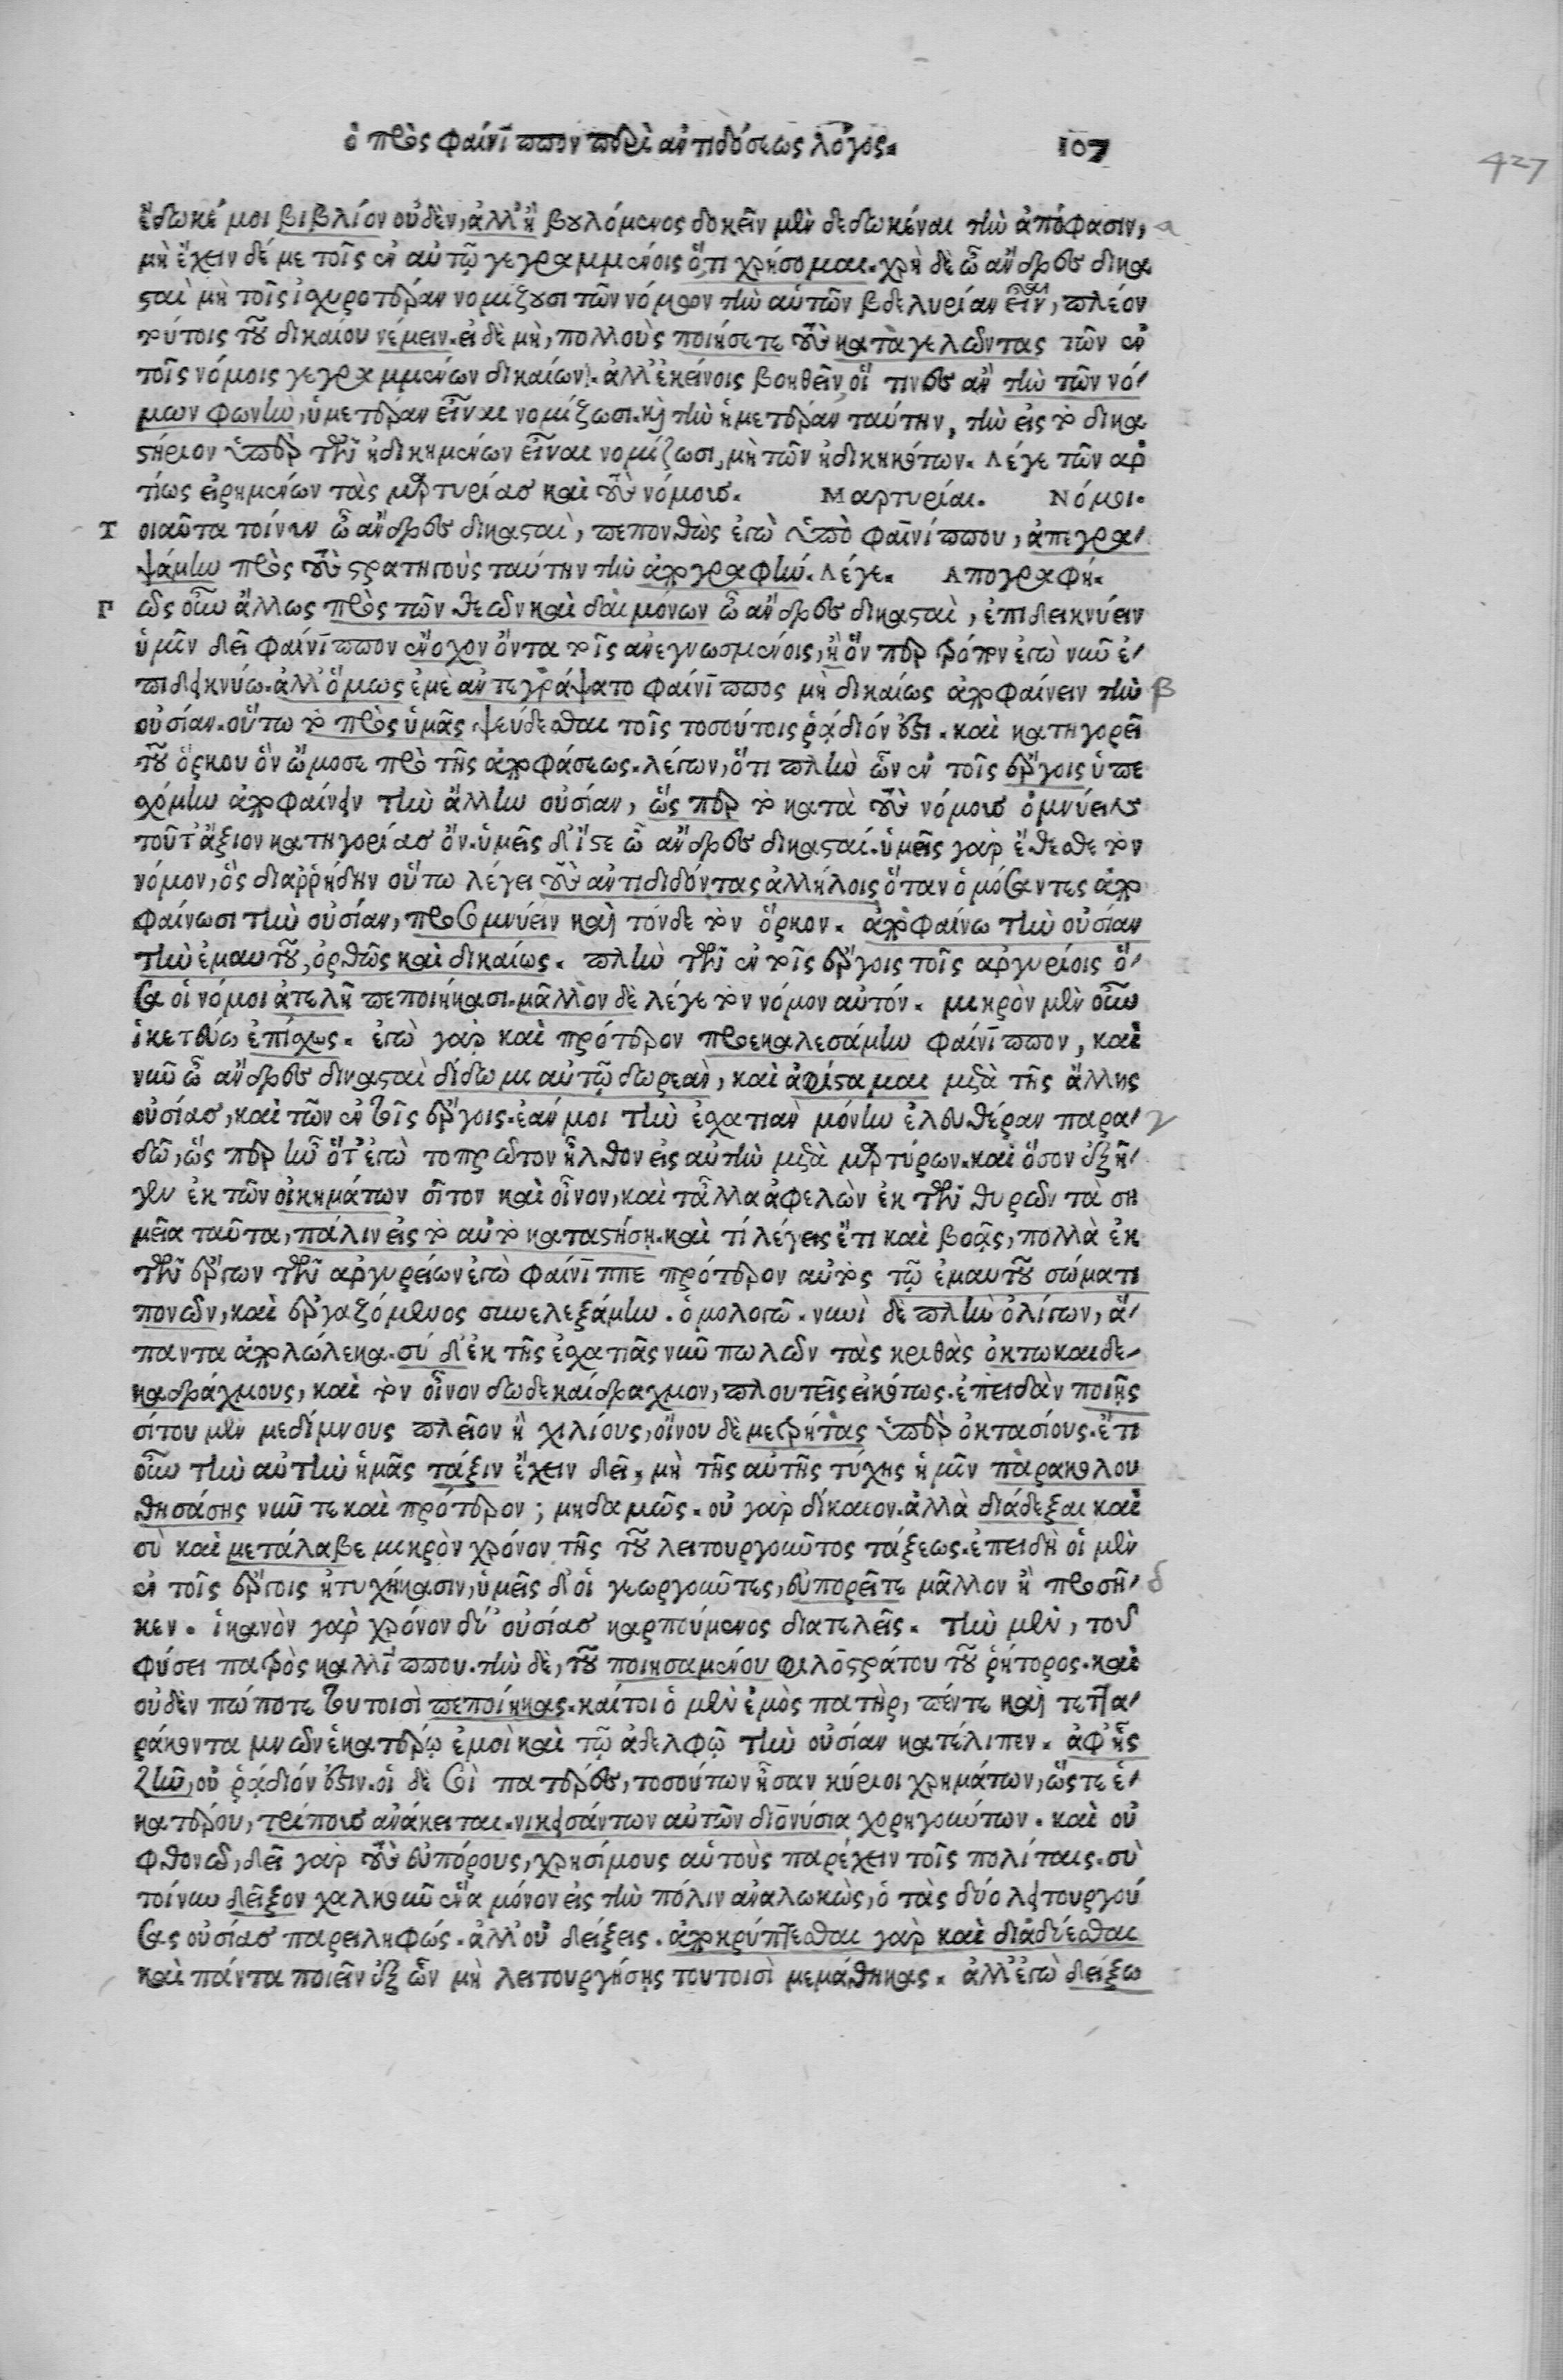 ὁ πρὸς φαίνιππον περὶ ἀντιδόσεως λόγος. 107
427
ἔδωκέ μοι βιβλίον οὐδὲν, ἀλλ' ἢ βουλόμενος δοκεῖν μὲν δεδωκέναι τὴν ἀπόφασιν, α
μὴ ἔχειν δέ με τοῖς ἐν αὐτῷ γεγραμμένοις ὅ,τι χρήσομαι. χρὴ δὲ ὦ ἄνδρες δικα
σταὶ μὴ τοῖς ἰσχυροτέραν νομίζουσι τῶν νόμων τὴν αὑτῶν βδελυρίαν εἶναι, πλέον
τούτοις τοῦ δικαίου νέμειν. εἰ δὲ μὴ, πολλοὺς ποιήσετε τοὺς καταγελῶντας τῶν ἐν
τοῖς νόμοις γεγραμμένων δικαίων. ἀλλ' ἐκείνοις βοηθεῖν, οἵ τινες ἂν τὴν τῶν νό-
μων φωνὴν, ὑμετέραν εἶναι νομίζωσι. καὶ τὴν ἡμετέραν ταύτην, τὴν εἰς τὸ δικα
στήριον ὑπὲρ τῶν ἠδικημένων εἶναι νομίζωσι, μὴ τῶν ἠδικηκότων. λέγε τῶν ἀρ
τίως εἰρημένων τὰς μαρτυρίας καὶ τοὺς νόμους. Μαρτυρίαι. Νόμοι.
Τ οιαῦτα τοίνυν ὦ ἄνδρες δικασταὶ, πεπονθὼς ἐγὼ ὑπὸ φαινίππου, ἀπεγρα-
ψάμην πρὸς τοὺς στρατηγοὺς ταύτην τὴν ἀπογραφήν. λέγε. Απογραφή.
Γ ῶς οὖν ἄλλως πρὸς τῶν θεῶν καὶ δαιμόνων ὦ ἄνδρες δικασταὶ, ἐπιδεικνύειν
ὑμῖν δεῖ φαίνιππον ἔνοχον ὄντα τοῖς ἀνεγνωσμένοις, ἢ ὅν περ τρόπον ἐγὼ νῦν ἐ-
πιδεικνύω. ἀλλ' ὅμως ἐμὲ ἀντεγράψατο φαίνιππος μὴ δικαίως ἀποφαίνειν τὴν β
οὐσίαν. οὕτω τὸ πρὸς ὑμᾶς ψεύδεσθαι τοῖς τοσούτοις ῥᾴδιόν ἐστι. καὶ κατηγορεῖ
τοῦ ὅρκου ὃν ὤμοσε πρὸ τῆς ἀποφάσεως. λέγων, ὅτι πλὴν ὧν ἐν τοῖς ἔργοις ὑπε
σχόμην ἀποφαίνειν τὴν ἄλλην οὐσίαν, ὥς περ τὸ κατὰ τοὺς νόμους ὀμνύειν
τοῦτ' ἄξιον κατηγορίας ὄν. ὑμεῖς δ' ἴστε ὦ ἄνδρες δικασταί. ὑμεῖς γὰρ ἔθεσθε τὸν
νόμον, ὃς διαῤῥήδην οὕτω λέγει τοὺς ἀντιδιδόντας ἀλλήλοις ὅταν ὀμόσαντες ἀπο
φαίνωσι τὴν οὐσίαν, προσομνύειν καὶ τόνδε τὸν ὅρκον. ἀποφαίνω τὴν οὐσίαν
τὴν ἐμαυτοῦ, ὀρθῶς καὶ δικαίως. πλὴν τῶν ἐν τοῖς ἔργοις τοῖς ἀργυρίοις ὅ-
σα οἱ νόμοι ἀτελῆ πεποιήκασι. μᾶλλον δὲ λέγε τὸν νόμον αὐτόν. μικρὸν μὲν οὖν
ἱκετεύω ἐπίσχως. ἐγὼ γὰρ καὶ πρότερον προεκαλεσάμην φαίνιππον, καὶ
νῦν ὦ ἄνδρες δικασταὶ δίδωμι αὐτῷ δωρεὰν, καὶ ἀφίσταμαι μετὰ τῆς ἄλλης
οὐσίας, καὶ τῶν ἐν τοῖς ἔργοις. ἐάν μοι τὴν ἐσχατιὰν μόνην ἐλευθέραν παρα- γ
δῷ, ὥς περ ἦν ὅτ' ἐγὼ τοπρῶτον ἦλθον εἰς αὐτὴν μετὰ μαρτύρων. καὶ ὅσον ἐξῆ-
γεν ἐκ τῶν οἰκημάτων σῖτον καὶ οἶνον, καὶ τἆλλα ἀφελὼν ἐκ τῶν θυρῶν τὰ ση
μεῖα ταῦτα, πάλιν εἰς τὸ αὐτὸ καταστήσῃ. καὶ τί λέγεις ἔτι καὶ βοᾷς, πολλὰ ἐκ
τῶν ἔργων τῶν ἀργυρείων ἐγὼ φαίνιππε πρότερον αὐτὸς τῷ ἐμαυτοῦ σώματι
πονῶν, καὶ ἐργαζόμενος συνελεξάμην. ὁμολογῶ. νυνὶ δὲ πλὴν ὀλίγων, ἅ-
παντα ἀπολώλεκα. σύ δ' ἐκ τῆς ἐσχατιᾶς νῦν πωλῶν τὰς κριθὰς ὀκτωκαιδε-
καδράχμους, καὶ τὸν οἶνον δωδεκάδραχμον, πλουτεῖς εἰκότως. ἐπειδὰν ποιῇς
σίτου μὲν μεδίμνους πλεῖον ἢ χιλίους, οἴνου δὲ μετρητὰς ὑπὲρ ὀκτασίους. ἔτι
οὖν τὴν αὐτὴν ἡμᾶς τάξιν ἔχειν δεῖ, μὴ τῆς αὐτῆς τύχης ἡμῖν παρακολου
θησάσης νῦν τε καὶ πρότερον; μηδαμῶς. οὐ γὰρ δίκαιον. ἀλλὰ διάδεξαι καὶ
σὺ καὶ μετάλαβε μικρὸν χρόνον τῆς τοῦ λειτουργοῦντος τάξεως. ἐπειδὴ οἱ μὲν
ἐν τοῖς ἔργοις ἠτυχήκασιν, ὑμεῖς δ' οἱ γεωργοῦντες, εὐπορεῖτε μᾶλλον ἢ προσῆ- δ
κεν. ἱκανὸν γὰρ χρόνον δύ' οὐσίας καρπούμενος διατελεῖς. τὴν μὲν, τοῦ
φύσει πατρὸς καλλίππου. τὴν δὲ, τοῦ ποιησαμένου φιλοστράτου τοῦ ῥήτορος. καὶ
οὐδὲν πώποτε τουτοισὶ πεποίηκας. καίτοι ὁ μὲν ἐμὸς πατὴρ, πέντε καὶ τετταρ-
ράκοντα μνῶν ἑκατέρῳ ἐμοὶ καὶ τῷ ἀδελφῷ τὴν οὐσίαν κατέλιπεν. ἀφ' ἧς
ζῆν, οὐ ῥᾴδιόν ἐστιν. οἱ δὲ σοὶ πατέρες, τοσούτων ἦσαν κύριοι χρημάτων, ὥστε ἑ-
κατέρου, τρίπους ἀνάκειται. νικησάντων αὐτῶν διονύσια χορηγούντων. καὶ οὐ
φθονῶ, δεῖ γὰρ τοὺς εὐπόρους, χρησίμους αὑτοὺς παρέχειν τοῖς πολίταις. σὺ
τοίνυν δεῖξον χαλκοῦν ἕνα μόνον εἰς τὴν πόλιν ἀναλωκὼς, ὁ τὰς δύο λειτουργού
σας οὐσίας παρειληφώς. ἀλλ' οὐ δείξεις. ἀποκρύπτεσθαι γὰρ καὶ διαδύεσθαι
καὶ πάντα ποιεῖν ἐξ ὧν μὴ λειτουργήσῃς τουτοισὶ μεμάθηκας. ἀλλ' ἐγὼ δείξω